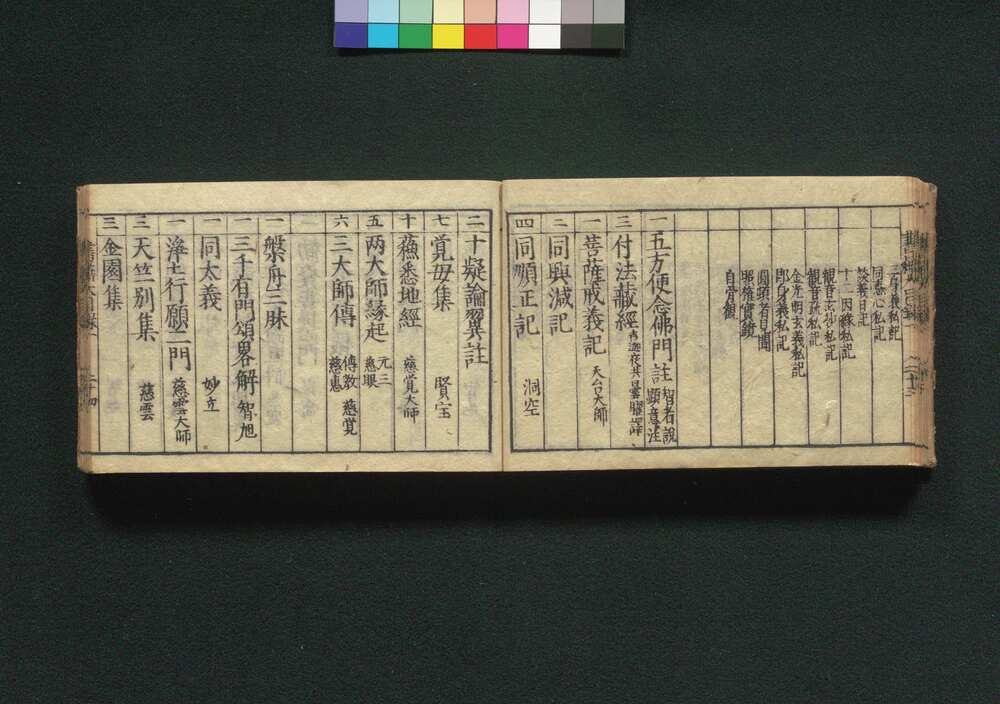 三身義私記
同悉心私記
談義日記
十二因縁私記
觀音玄私記
觀音疏私記
金光明玄義私記
即身義私記
圓頓者見聞
照權實鏡
自脊觀
一 五方便念佛門註 智者說 顯意注
三 付法藏經 吉迦夜共曇曜譯
一 菩薩戒義記 天台大師
二 同興滅記
四 同順正記 洞空
二 十疑論翼註
七 覚母集 賢宝
十 蘓悉地經 慈覚大師
五 两大師縁起 元三 慈眼
六 三大師傳 傳教 慈覚 慈惠
一 槃舟三昧
一 三千有門頌畧解 智旭
一 同太義 妙立
一 浄土行願二門 慈雲大師
三 天竺別集 慈雲
三 金園集